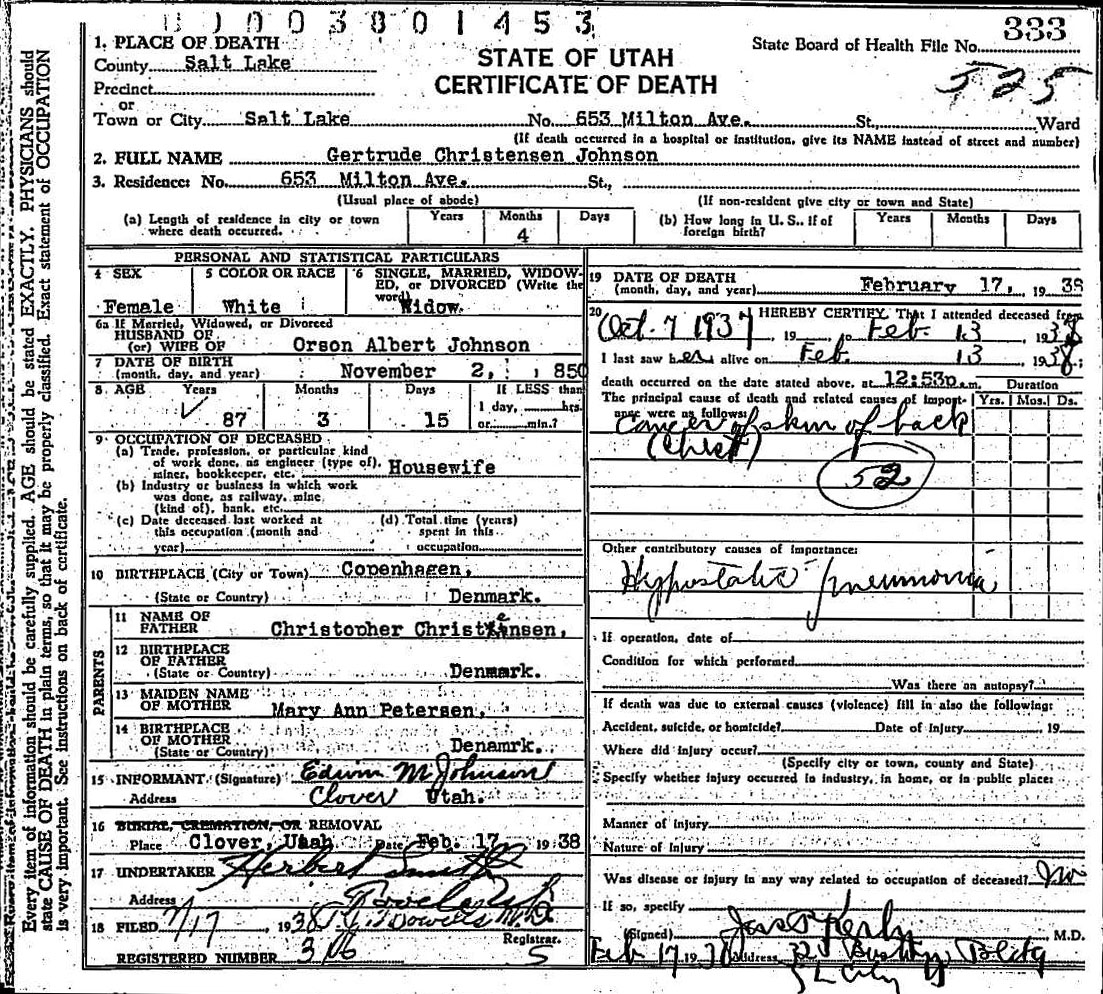 0003801453
333
1. PLACE OF DEATH
STATE OF UTAH
CERTIFICATE OF DEATH
State Board of Health File No. 333
525
County Salt Lake
Precinct
or
Town or City Salt Lake No. 653 Milton Ave. St., Ward
(If death occurred in a hospital or institution, give its NAME instead of street and number)
2. FULL NAME Gertrude Christensen Johnson
3. Residence: No. 653 Milton Ave. St.,
(Usual place of abode) (If non-resident give city or town and State)
(a) Length of residence in city or town where death occurred. Years Months 4 Days
(b) How long in U. S., if of foreign birth? Years Months Days
PERSONAL AND STATISTICAL PARTICULARS
4 SEX Female
5 COLOR OR RACE White
6 SINGLE, MARRIED, WIDOWED, or DIVORCED (Write the word) Widow.
6a If Married, Widowed, or Divorced
HUSBAND OF
(or) WIFE OF Orson Albert Johnson
7 DATE OF BIRTH
(month, day, and year) November 2, , 850
8 AGE Years 87 Months 3 Days 15 If LESS than 1 day, hrs. or min.?
9 OCCUPATION OF DECEASED
(a) Trade, profession, or particular kind
of work done, as engineer (type of),
miner, bookkeeper, etc. Housewife
(b) Industry or business in which work
was done, as railway, mine
(kind of), bank, etc.
(c) Date deceased last worked at
this occupation (month and
year)
(d) Total time (years)
spent in this
occupation
10 BIRTHPLACE (City or Town) Copenhagen,
(State or Country) Denmark.
PARENTS
11 NAME OF
FATHER Christopher Christensen,
12 BIRTHPLACE
OF FATHER
(State or Country) Denmark.
13 MAIDEN NAME
OF MOTHER Mary Ann Petersen,
14 BIRTHPLACE
OF MOTHER
(State or Country) Denamrk.
15 INFORMANT (Signature) Edwin M Johnson
Address Clover Utah.
16 BURIAL, CREMATION, OR REMOVAL
Place Clover, Utah Date Feb. 17 1938
17 UNDERTAKER Herbert Smith
Address
18 FILED 2/17, 1938
Registrar.
REGISTERED NUMBER 306 5
19 DATE OF DEATH
(month, day, and year) February 17, 1938
20 HEREBY CERTIFY, That I attended deceased from
Oct. 7 1937, 19 to Feb. 13, 1938
I last saw her alive on Feb. 13 1938;
death occurred on the date stated above, at 12:53p.m. Duration
The principal cause of death and related causes of importance were as follows: Yrs. Mos. Ds.
Cancer of skin of back
52
Other contributory causes of importance:
Hypostatic pneumonia
If operation, date of
Condition for which performed
Was there an autopsy?
If death was due to external causes (violence) fill in also the following:
Accident, suicide, or homicide? Date of Injury 19
Where did injury occur?
(Specify city or town, county and State)
Specify whether injury occurred in industry, in home, or in public place:
Manner of Injury
Nature of Injury
Was disease or injury in any way related to occupation of deceased? No
If so, specify
(Signed) M.D.
Feb 17 1938 Address Bldg
S L City
Every item of information should be carefully supplied. AGE should be stated EXACTLY. PHYSICIANS should
state CAUSE OF DEATH in plain terms, so that it may be properly classified. Exact statement of OCCUPATION
is very important. See instructions on back of certificate.